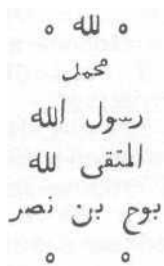 لله
محمد
رسول الله
المتقى لله
بوح بن نصر